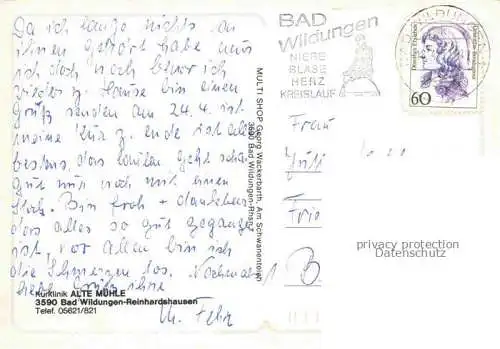 Da ich lange nichts von
ihnen gehört habe muss
ich doch noch bevor ich
wieder z. Hause bin einen
Gruß senden am 24.4. ist
meine Kur z. ende ist alles
bestens, das laufen geht schon
gut nur noch mit einem
Stock. Bin froh + dankbar
dass alles so gut gegangen
ist, vor allem bin ich
die Schmerzen los. Nochmal
liebe Grüße ihre
Kurklinik ALTE MÜHLE
3590 Bad Wildungen-Reinhardshausen
Telef. 05621/821
MULTI-SHOP Georg Wackerbarth, Am Schwanenteich
3590 Bad Wildungen-Rhsn.
BAD
Wildungen
NIERE
BLASE
HERZ
KREISLAUF
60
Frau
B
privacy protection
Datenschutz